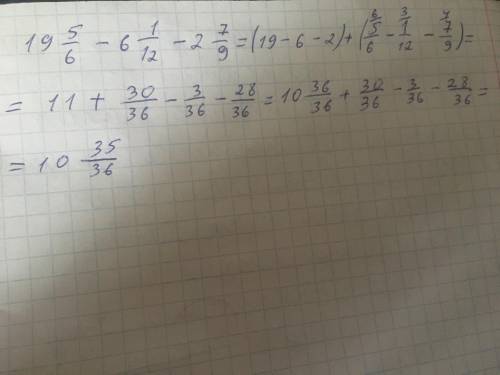 19 5/6 - 6 1/12 - 2 7/9 = (19 - 6 - 2) + (⁶5/6 - ³1/12 - ⁴7/9) =
= 11 + 30/36 - 3/36 - 28/36 = 10 36/36 + 30/36 - 3/36 - 28/36 =
= 10 35/36